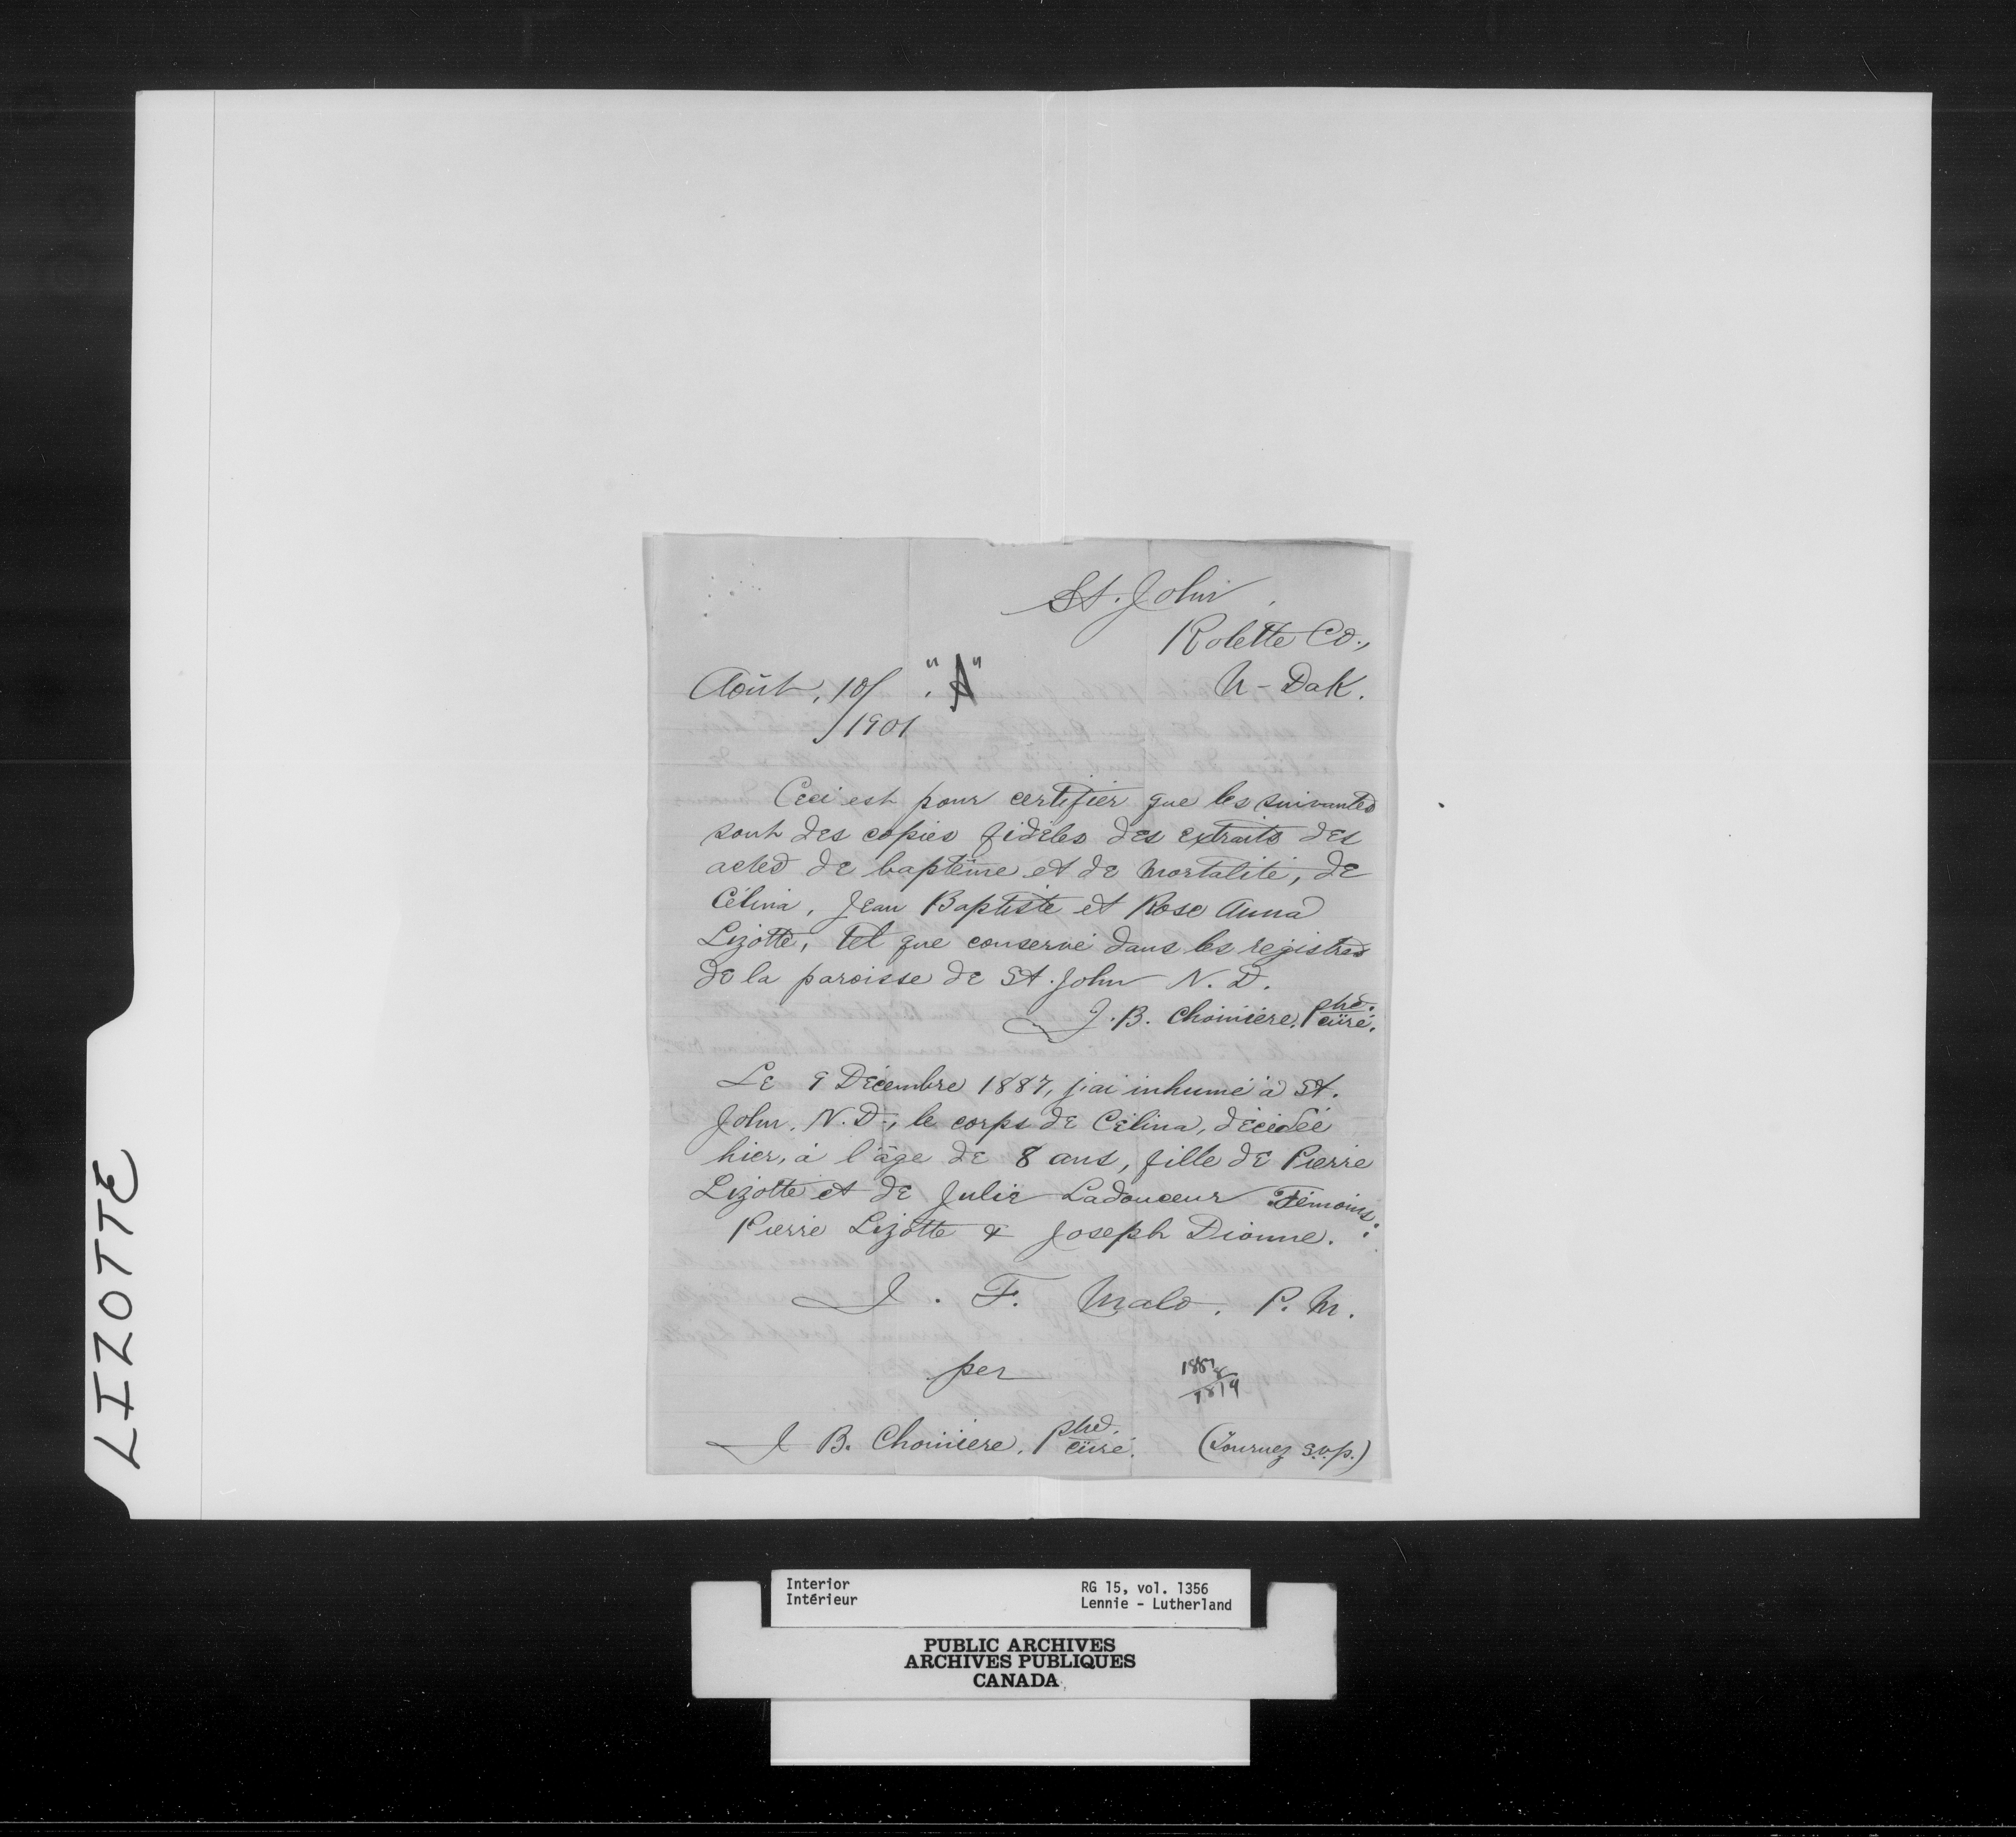 St. John,
Rolette Co.,
N-Dak.
Août, 10/ "A"
/1901
Ceci est pour certifier que les suivantes
sont des copies fidèles des extraits des
actes de baptême et de mortalité, de
Célina, Jean Baptiste et Rose Anna
Lizotte, tel que conservé dans les registres
de la paroisse de St. John N. D.
J. B. Choinière, Ptre. curé.
Le 9 Décembre 1887, j'ai inhumé à St.
John, N. D., le corps de Célina, décédée
hier, à l'âge de 8 ans, fille de Pierre
Lizotte et de Julie Ladouceur Témoins:
Pierre Lizotte & Joseph Dionne.
J. F. Malo. P. M.
per
1887
8
1879
J B. Choiniere, Ptre. curé. (Tournez s.v.p.)
LIZOTTE
Interior RG 15, vol. 1356
Intérieur Lennie - Lutherland
PUBLIC ARCHIVES
ARCHIVES PUBLIQUES
CANADA